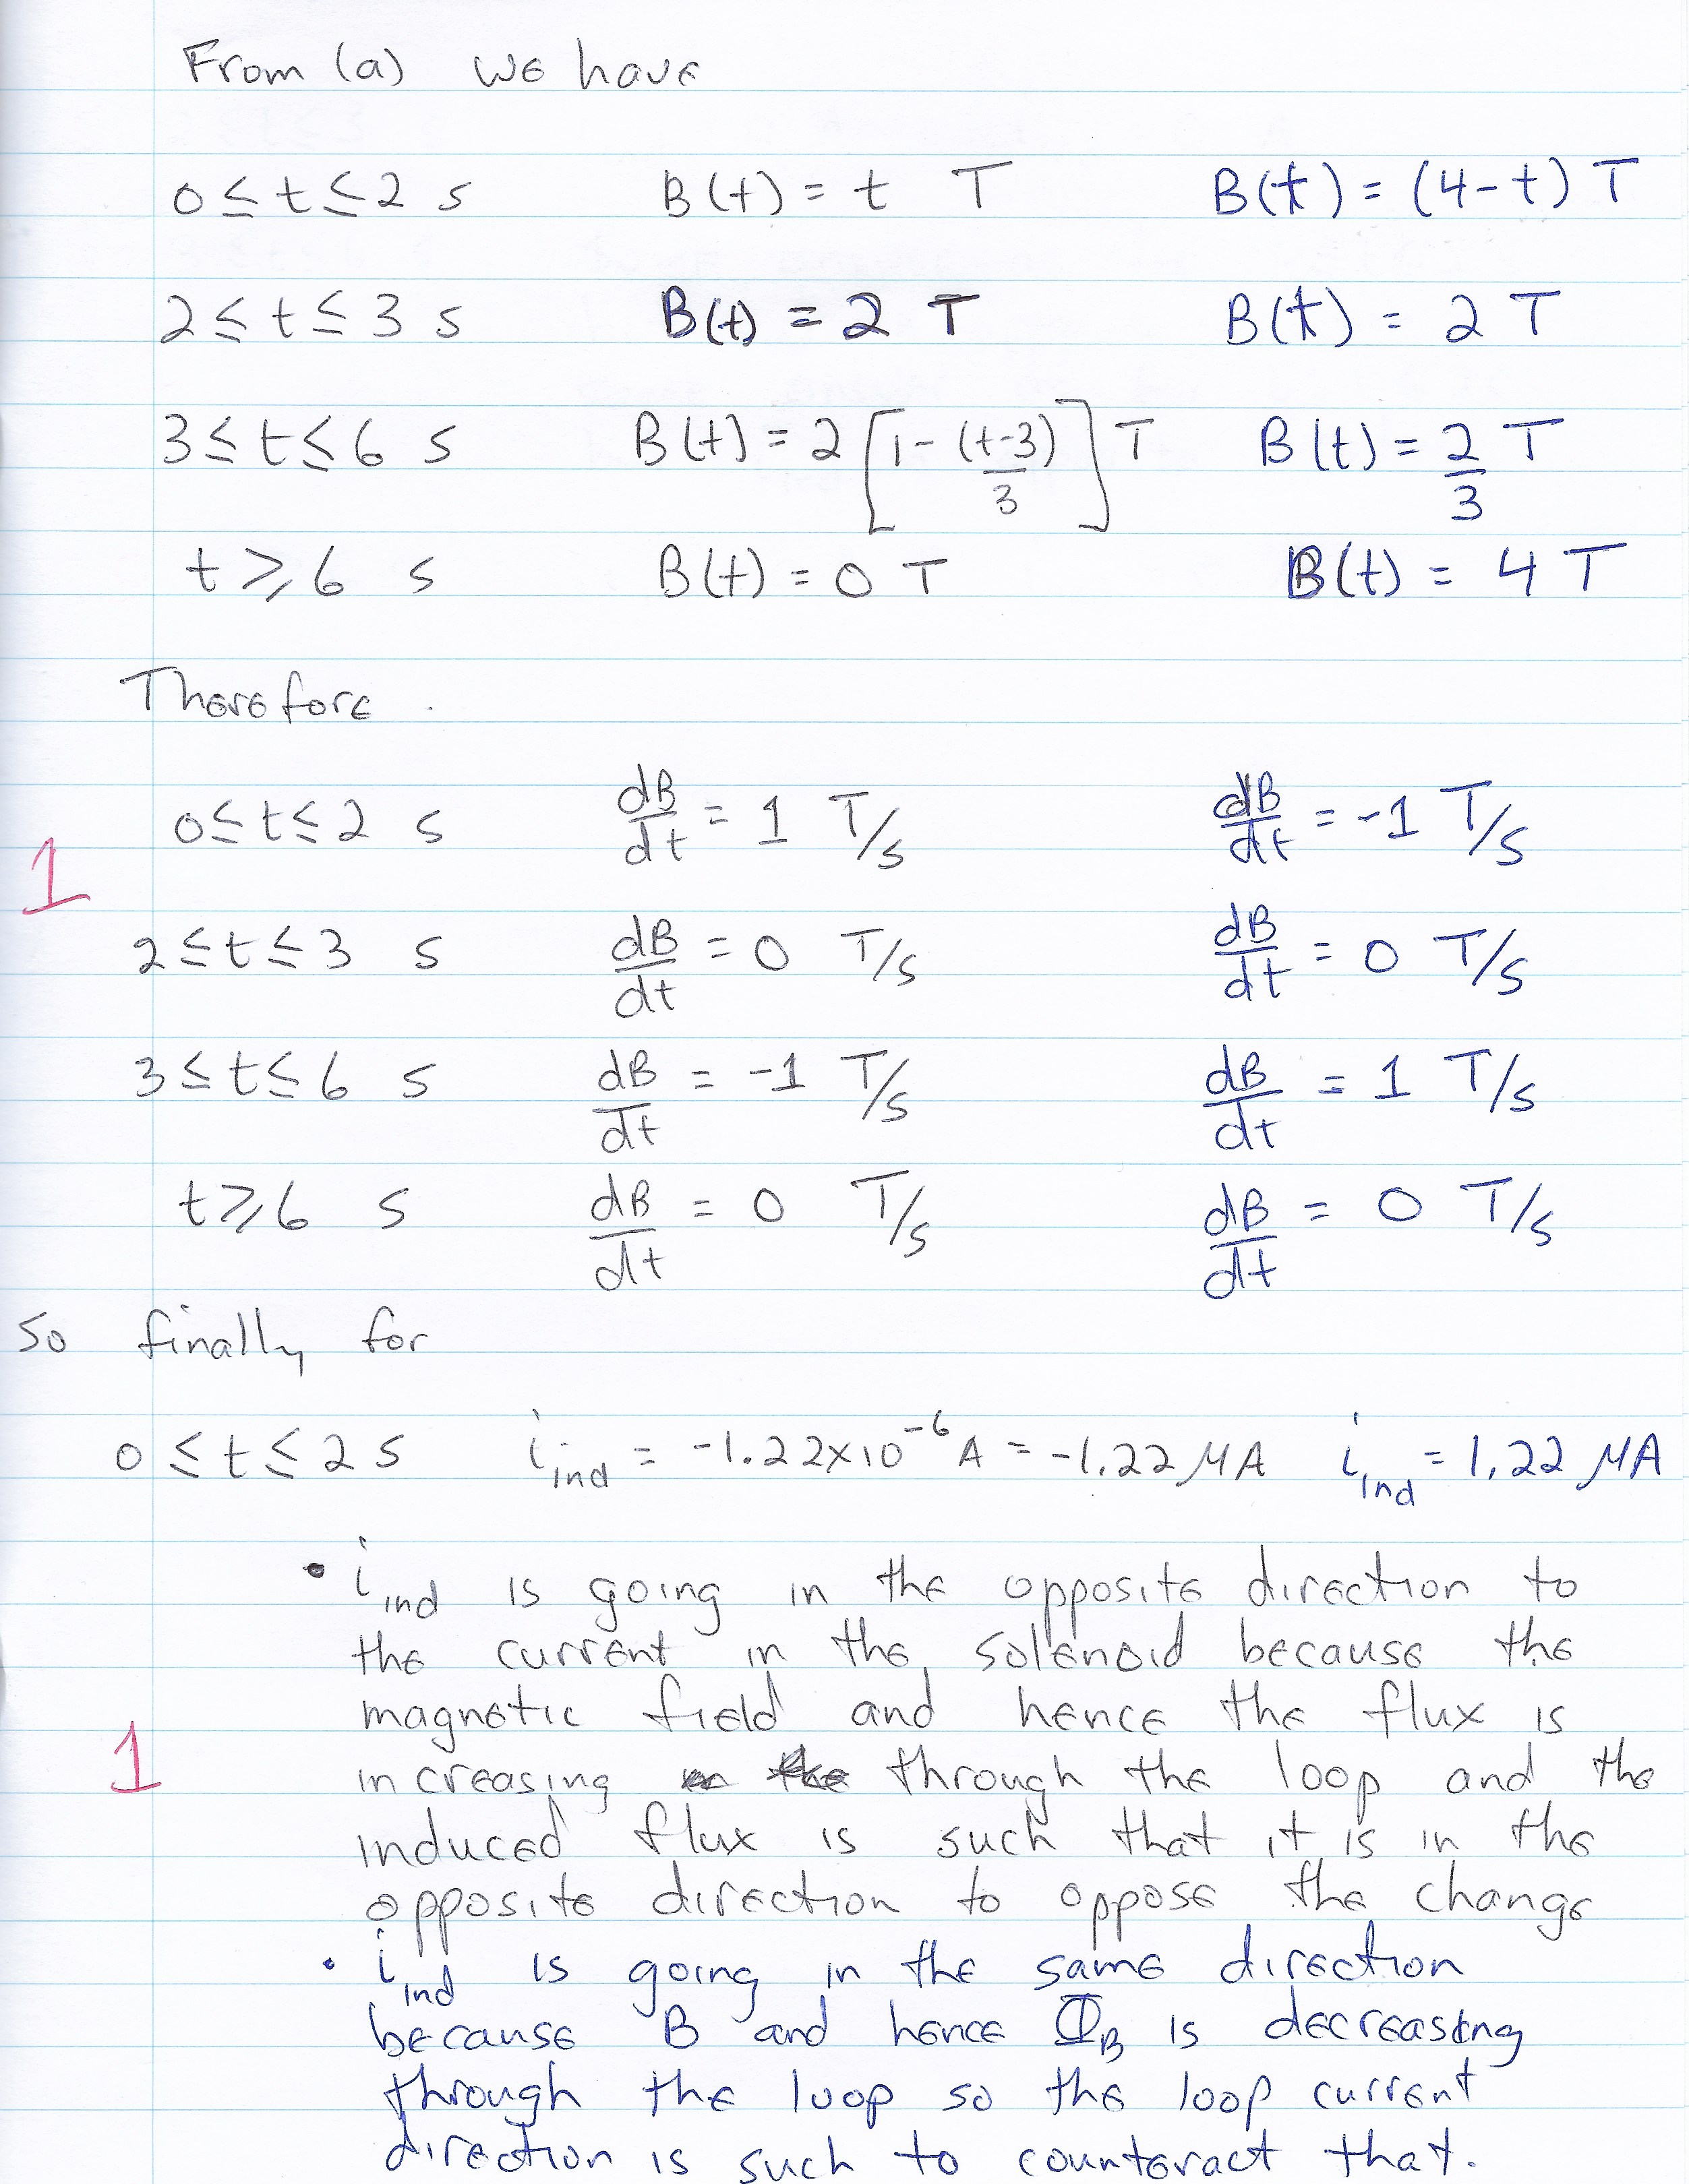 From (a) we have
0 ≤ t ≤ 2 s B(t) = t T B(t) = (4-t) T
2 ≤ t ≤ 3 s B(t) = 2 T B(t) = 2 T
3 ≤ t ≤ 6 s B(t) = 2 [1 - (t-3)/3] T B(t) = 2/3 T
t ≥ 6 s B(t) = 0 T B(t) = 4 T
Therefore.
0 ≤ t ≤ 2 s dB/dt = 1 T/s dB/dt = -1 T/s
1
2 ≤ t ≤ 3 s dB/dt = 0 T/s dB/dt = 0 T/s
3 ≤ t ≤ 6 s dB/dt = -1 T/s dB/dt = 1 T/s
t ≥ 6 s dB/dt = 0 T/s dB/dt = 0 T/s
So finally for
0 ≤ t ≤ 2 s i_ind = -1.22×10^-6 A = -1.22 μA i_ind = 1.22 μA
• i_ind is going in the opposite direction to
the current in the solenoid because the
magnetic field and hence the flux is
1 increasing through the loop and the
induced flux is such that it is in the
opposite direction to oppose the change
• i_ind is going in the same direction
because B and hence Φ_B is decreasing
through the loop so the loop current
direction is such to counteract that.